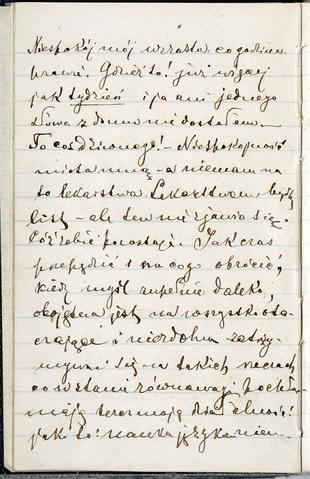 Niespokój mój wzrasta co godzina
prawie. Gdzież to! już więcej
jak tydzień i ja ani jednego
słowa z domu nie dostałem –
To coś dziwnego! – Niespokojność
miota mną – a niemam na
to lekarstwa. Lekarstwem byłby
list – ale ten nie zjawia się.
Cóż robić pozostaje. Jak czas
przepędzić i na co go obrócić,
kiedy myśl zupełnie daleko,
obojętna jest na wszystko ota-
czające i niezdolna zatrzy-
mywać się na takich rzeczach
co
mają teraz moją
jak to: nauka języka niem.